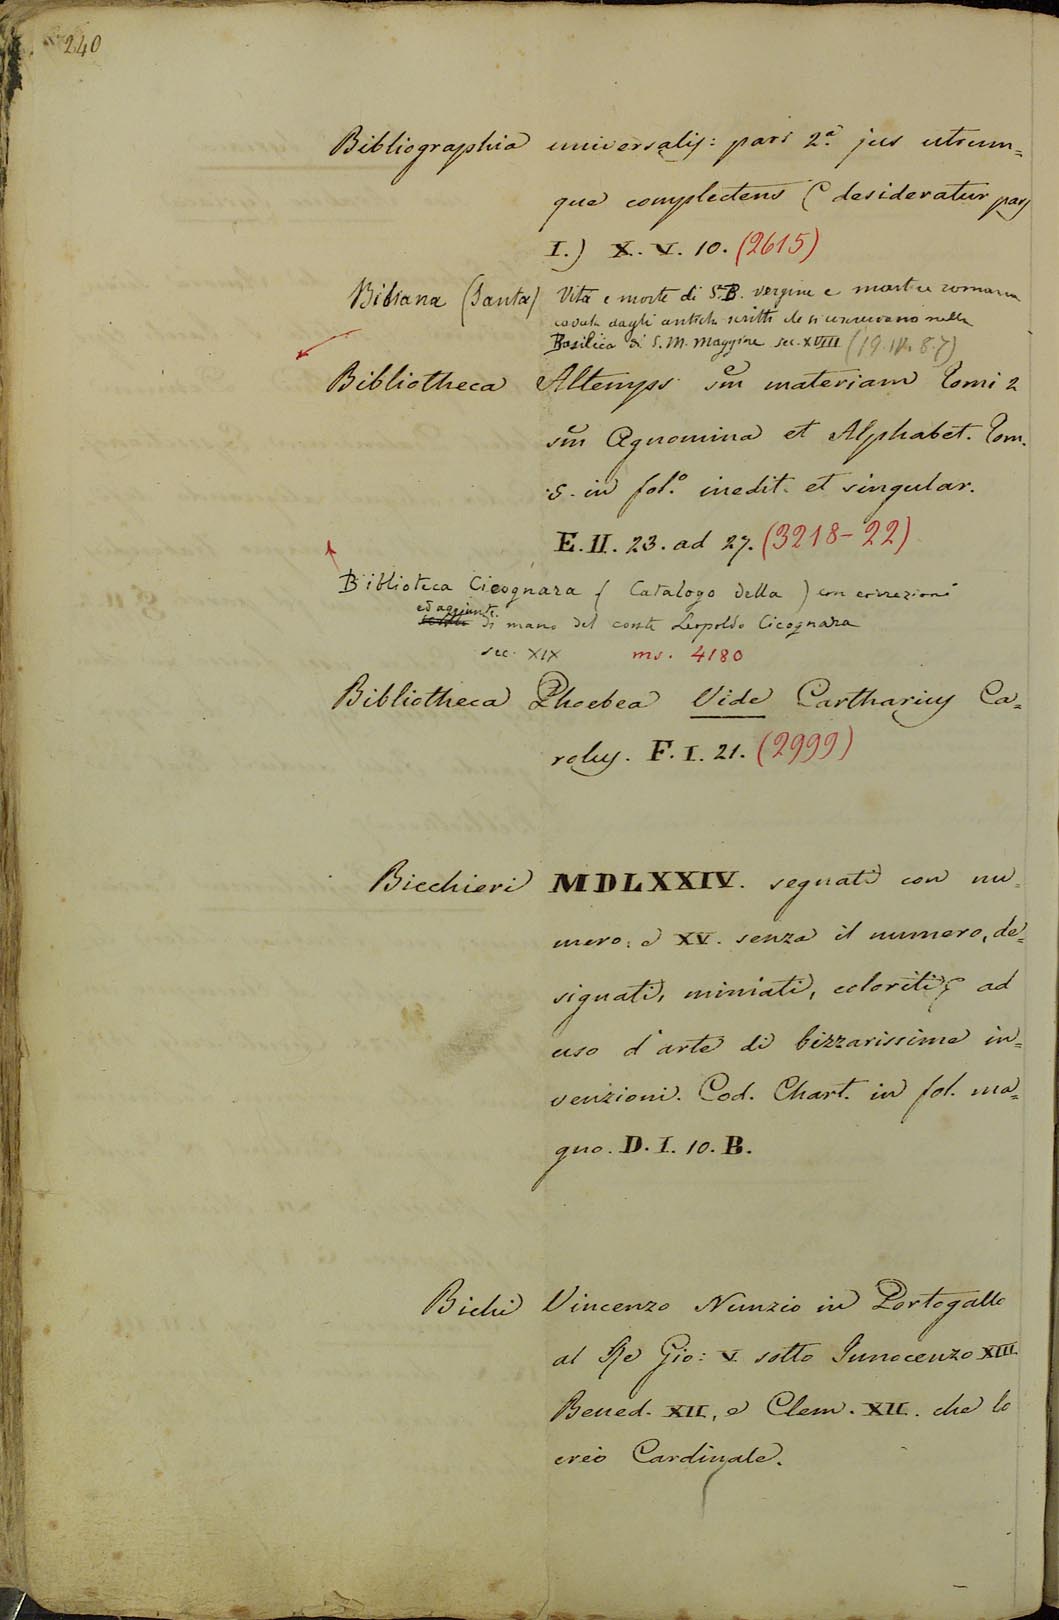 240
Bibliographia universalis: pars 2.a jus utrum=
que complectens (desideratur pars
I.) X. V. 10. (2615)
Bibiana (Santa) Vita e morte di S. B. vergine e martire romana
cavata dagli antichi scritti che si conservano nella
Basilica di S. M. Maggiore sec. XVIII (19. IV. 8. 7)
Bibliotheca Altemps sm̃ materiam Tomi 2
sm̃ Agnomina et Alphabet. Tom.
5. in fol.o inedit. et singular.
E. II. 23. ad 27. (3218-22)
Biblioteca Cicognara (Catalogo della) con correzioni
ed aggiunte
di mano del conte Leopoldo Cicognara
sec. XIX ms. 4180
Bibliotheca Phoebea Vide Cartharius Ca=
rolus. F. I. 21. (2999)
Bicchieri MDLXXIV. segnati con nu=
mero, e XV. senza il numero, de=
signati, miniati, coloriti, ad
uso d'arte di bizzarissime in=
venzioni. Cod. Chart. in fol. ma=
gno. D. I. 10. B.
Bichi Vincenzo Nunzio in Portogallo
al Re Gio: V. sotto Innocenzo XIII
Bened. XII, e Clem. XII. che lo
creò Cardinale.